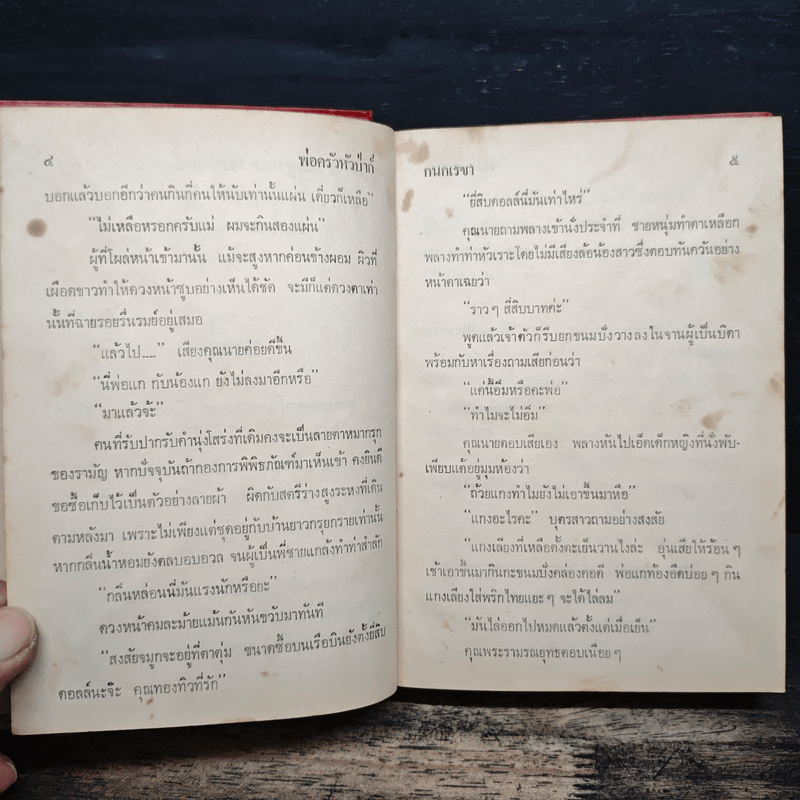 ๔ พ่อครัวหัวป่าก์
บอกแล้วบอกอีกว่าคนกินกี่คนให้นับเท่านั้นแผ่น เดี๋ยวก็เหลือ”
“ไม่เหลือหรอกครับแม่ ผมจะกินสองแผ่น”
ผู้ที่โผล่หน้าเข้ามานั้น แม้จะสูงหากค่อนข้างผอม ผิวที่
เผือดขาวทำให้ดวงหน้าซูบอย่างเห็นได้ชัด จะมีก็แต่ดวงตาเท่า
นั้นที่ฉายรอยรื่นรมย์อยู่เสมอ
“แล้วไป....” เสียงคุณนายค่อยดีขึ้น
“นี่พ่อแก กับน้องแก ยังไม่ลงมาอีกหรือ”
“มาแล้วจ้ะ”
คนที่รับปากรับคำนุ่งโสร่งที่เดิมคงจะเป็นลายตาหมากรุก
ของรามัญ หากปัจจุบันถ้ากองการพิพิธภัณฑ์มาเห็นเข้า คงยินดี
ขอซื้อเก็บไว้เป็นตัวอย่างลายผ้า ผิดกับสตรีร่างสูงระหงที่เดิน
ตามหลังมา เพราะไม่เพียงแต่ชุดอยู่กับบ้านยาวกรุยกรายเท่านั้น
หากกลิ่นน้ำหอมยังตลบอบอวล จนผู้เป็นพี่ชายแกล้งทำท่าสำลัก
“กลิ่นหล่อนนี่มันแรงนักหรือยะ”
ดวงหน้าคมละม้ายแม้นกันหันขวับมาทันที
“สงสัยจมูกจะอยู่ที่ตาตุ่ม ขนาดซื้อบนเรือบินยังตั้งยี่สิบ
ดอลล์นะจ๊ะ คุณทองทิวที่รัก”
กนกเรขา ๕
“ยี่สิบดอลล์นี่มันเท่าไหร่”
คุณนายถามพลางเข้านั่งประจำที่ ชายหนุ่มทำตาเหลือก
พลางทำท่าหัวเราะโดยไม่มีเสียงล้อน้องสาวซึ่งตอบทันควันอย่าง
หน้าตาเฉยว่า
“ราวๆ สี่สิบบาทค่ะ”
พูดแล้วเจ้าตัวก็รีบยกขนมปังวางลงในจานผู้เป็นบิดา
พร้อมกับหาเรื่องถามเสียก่อนว่า
“แค่นี้อิ่มหรือคะพ่อ”
“ทำไมจะไม่อิ่ม”
คุณนายตอบเสียเอง พลางหันไปเอ็ดเด็กหญิงที่นั่งพับ-
เพียบแต้อยู่มุมห้องว่า
“ถ้วยแกงทำไมยังไม่เอาขึ้นมาหือ”
“แกงอะไรคะ” บุตรสาวถามอย่างสงสัย
“แกงเลียงที่เหลือตั้งตะเย็นวานไงล่ะ อุ่นเสียให้ร้อนๆ
เช้าเอาขึ้นมากินกะขนมปังคล่องคอดี พ่อแกท้องอืดบ่อยๆ กิน
แกงเลียงใส่พริกไทยแยะๆ จะได้ไล่ลม”
“มันไล่ออกไปหมดแล้วตั้งแต่เมื่อเย็น”
คุณพระรามรณยุทธตอบเนือยๆ